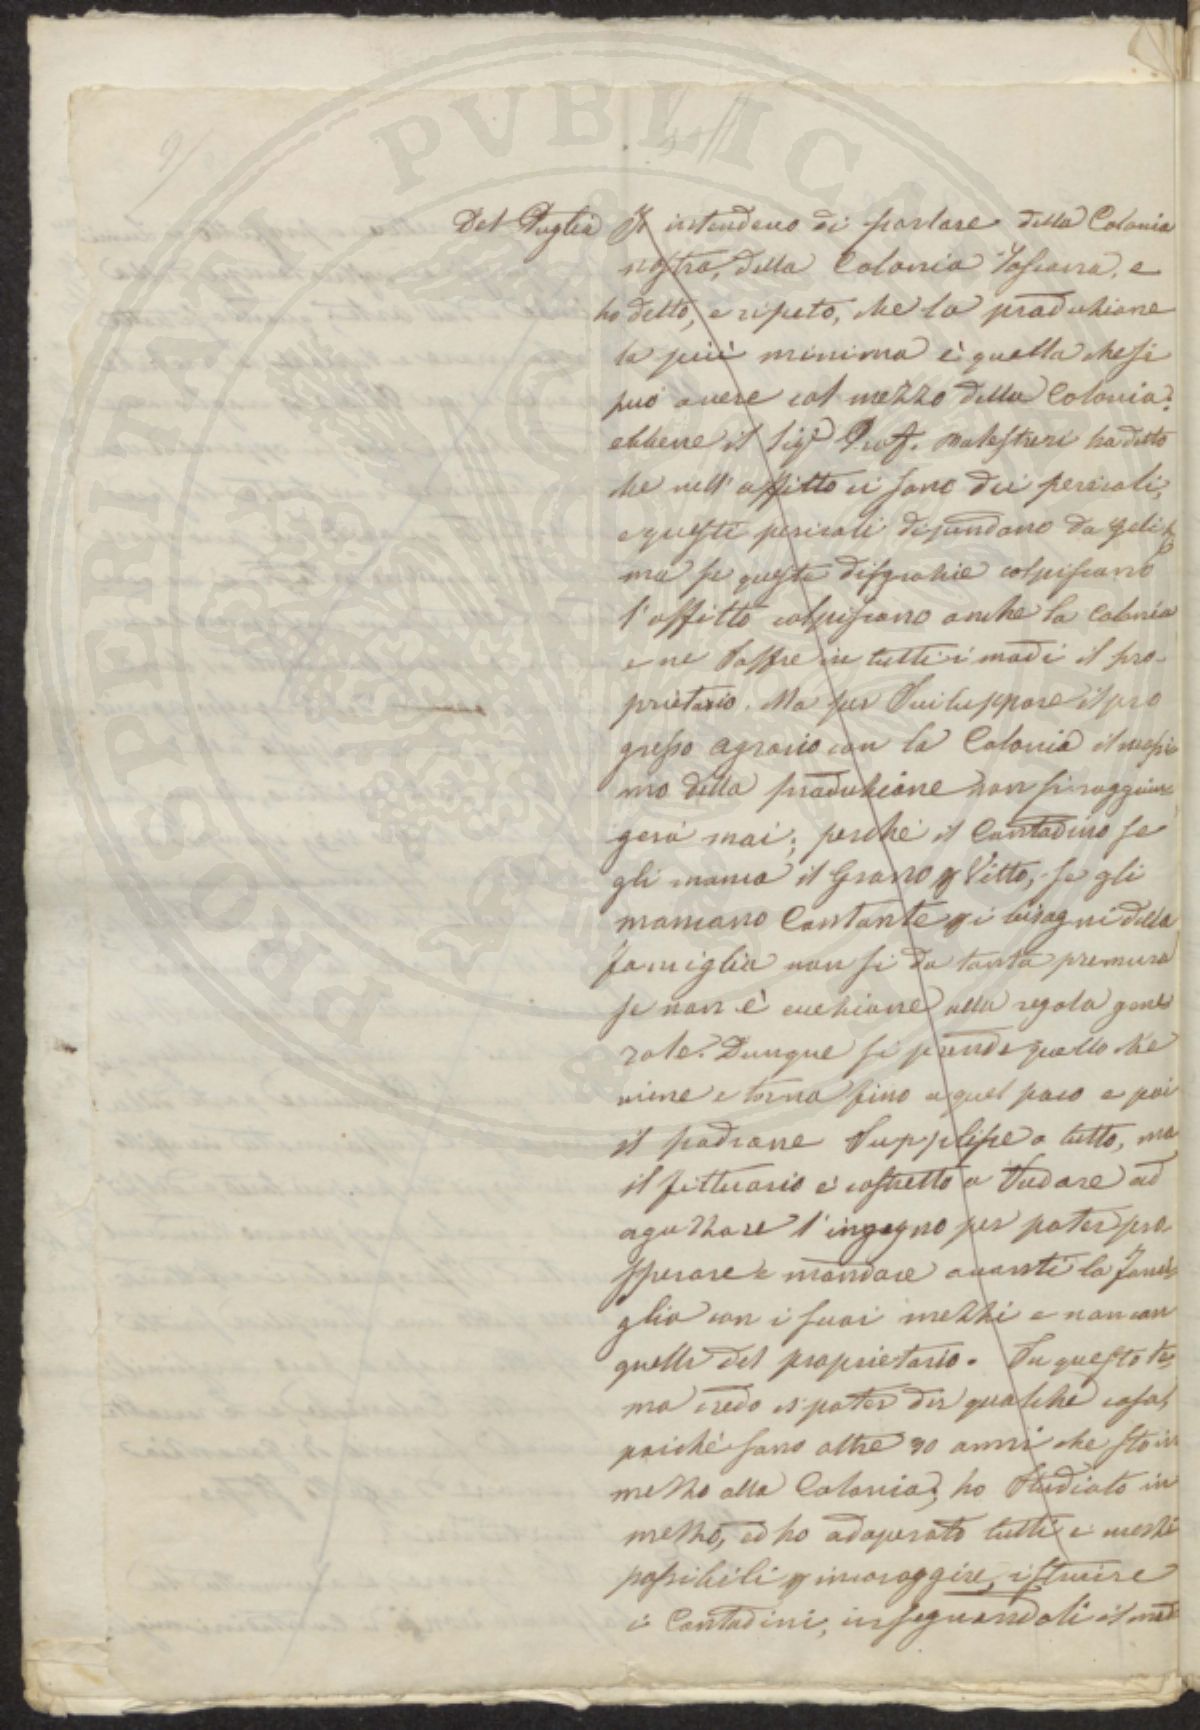 PROSPERITATI PVBLICAE
Del Puglia Io intendevo di parlare della Colonia
nostra, della Colonia Toscana, e
ho detto, e ripeto, che la produzione
la più minima è quella che si
può avere col mezzo della Colonia:
ebbene il Sigr Prof. ha detto
che nell'affitto ci sono dei pericoli,
e questi pericoli dipendono da geli
ma se queste disgrazie colpiscano
l'affitto colpiscano anche la Colonia
e ne soffre in tutti i modi il pro-
prietario. Ma per sviluppare il pro
gresso agrario con la Colonia il massi
mo della produzione non si raggiun-
gerà mai; perché il Contadino se
gli manca il Grano p Vitto, se gli
mancano Contante p i bisogni della
famiglia non si da tanta premura
se non è eccezione alla regola gene
rale. Dunque si prende quello che
viene e torna fino a quel poco e poi
il padrone supplisce a tutto, ma
il fittuario è costretto a sudare ad
aguzzare l'ingegno per poter pro-
sperare e mandare avanti la fami-
glia con i suoi mezzi e non con
quelli del proprietario. Su questo te-
ma credo di poter dir qualche cosa,
poiché sono oltre 30 anni che sto in
mezzo alla Colonia, ho studiato in
mezzo, ed ho adoperato tutti i mezzi
possibili p incoraggire, istruire
i Contadini, insegnandoli il mod